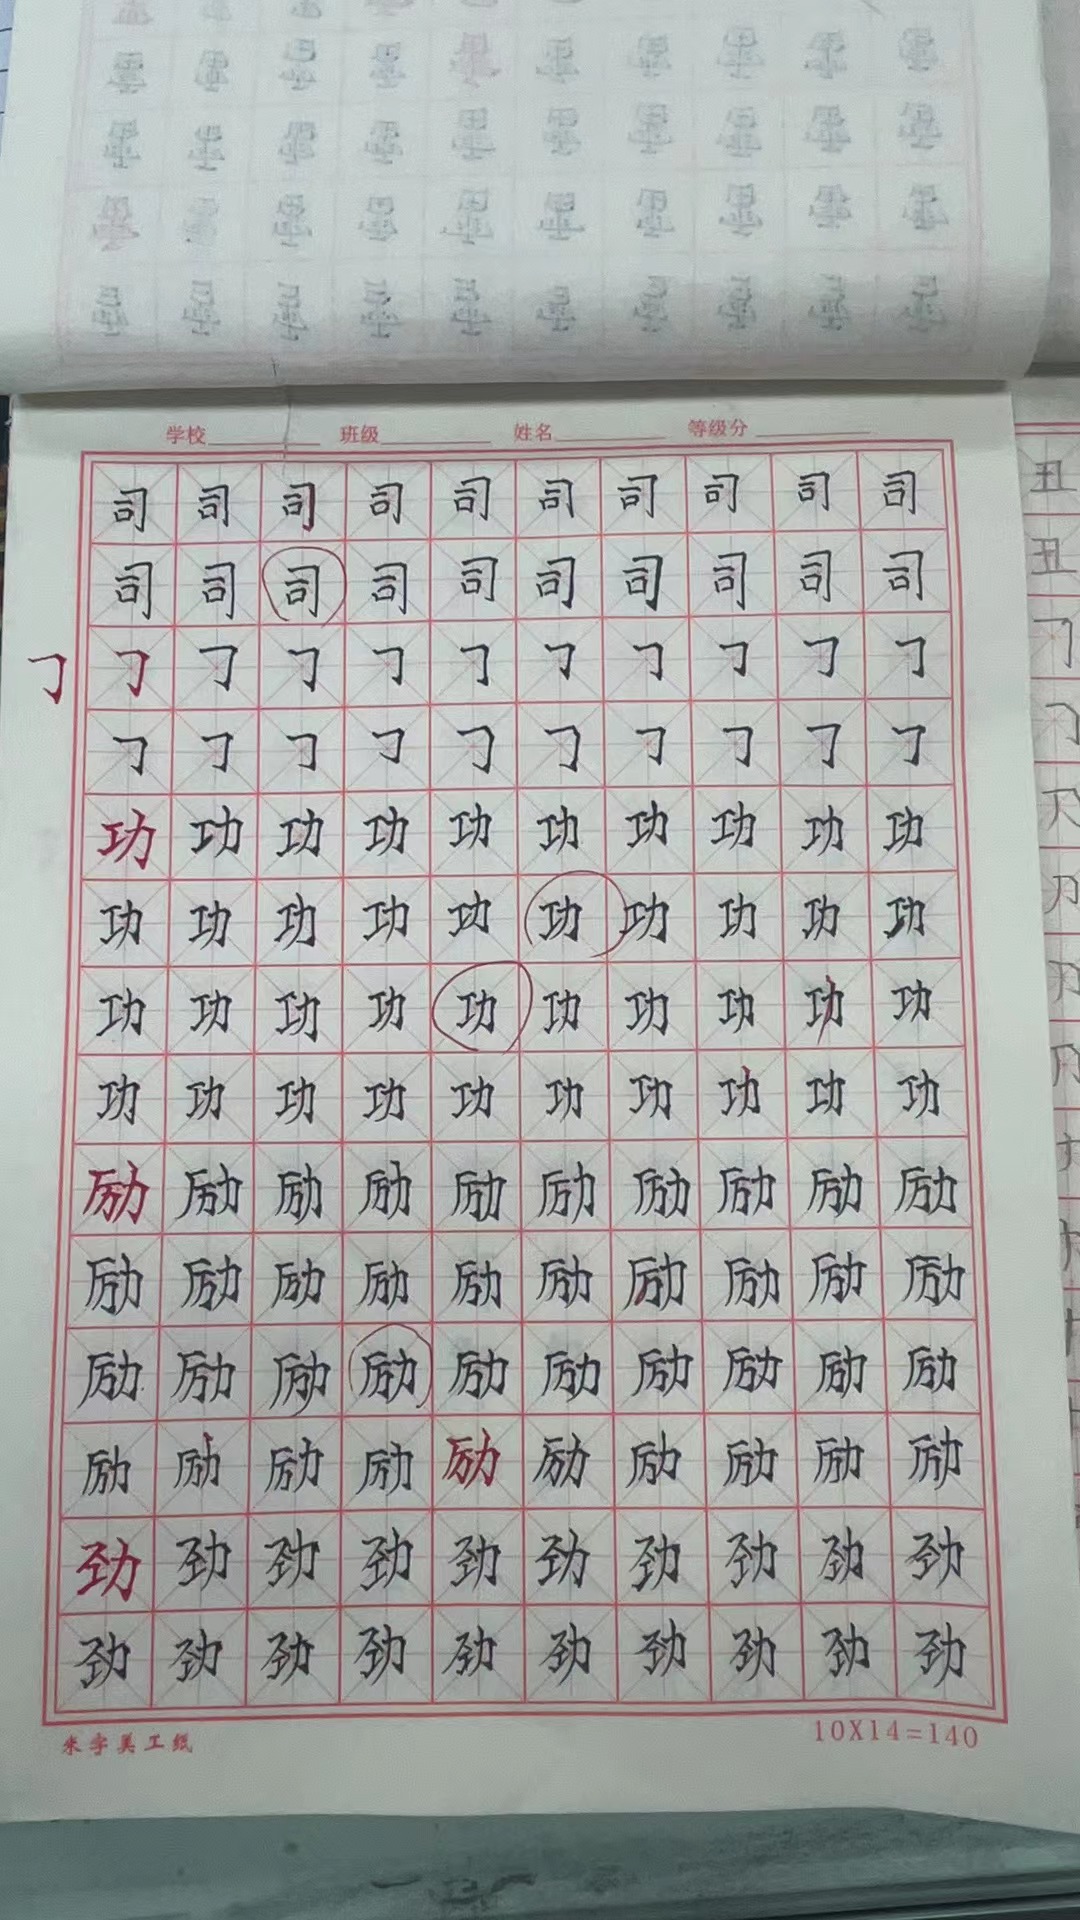 学校 班级 姓名 等级分
司 司 司 司 司 司 司 司 司 司
司 司 司 司 司 司 司 司 司 司
刁 刁 刁 刁 刁 刁 刁 刁 刁 刁 刁
刁 刁 刁 刁 刁 刁 刁 刁 刁 刁
功 功 功 功 功 功 功 功 功 功
功 功 功 功 功 功 功 功 功 功
功 功 功 功 功 功 功 功 功 功
功 功 功 功 功 功 功 功 功 功
励 励 励 励 励 励 励 励 励 励
励 励 励 励 励 励 励 励 励 励
励 励 励 励 励 励 励 励 励 励
励 励 励 励 励 励 励 励 励 励
劲 劲 劲 劲 劲 劲 劲 劲 劲 劲
劲 劲 劲 劲 劲 劲 劲 劲 劲 劲
米字美工纸 10X14=140
丑
丑